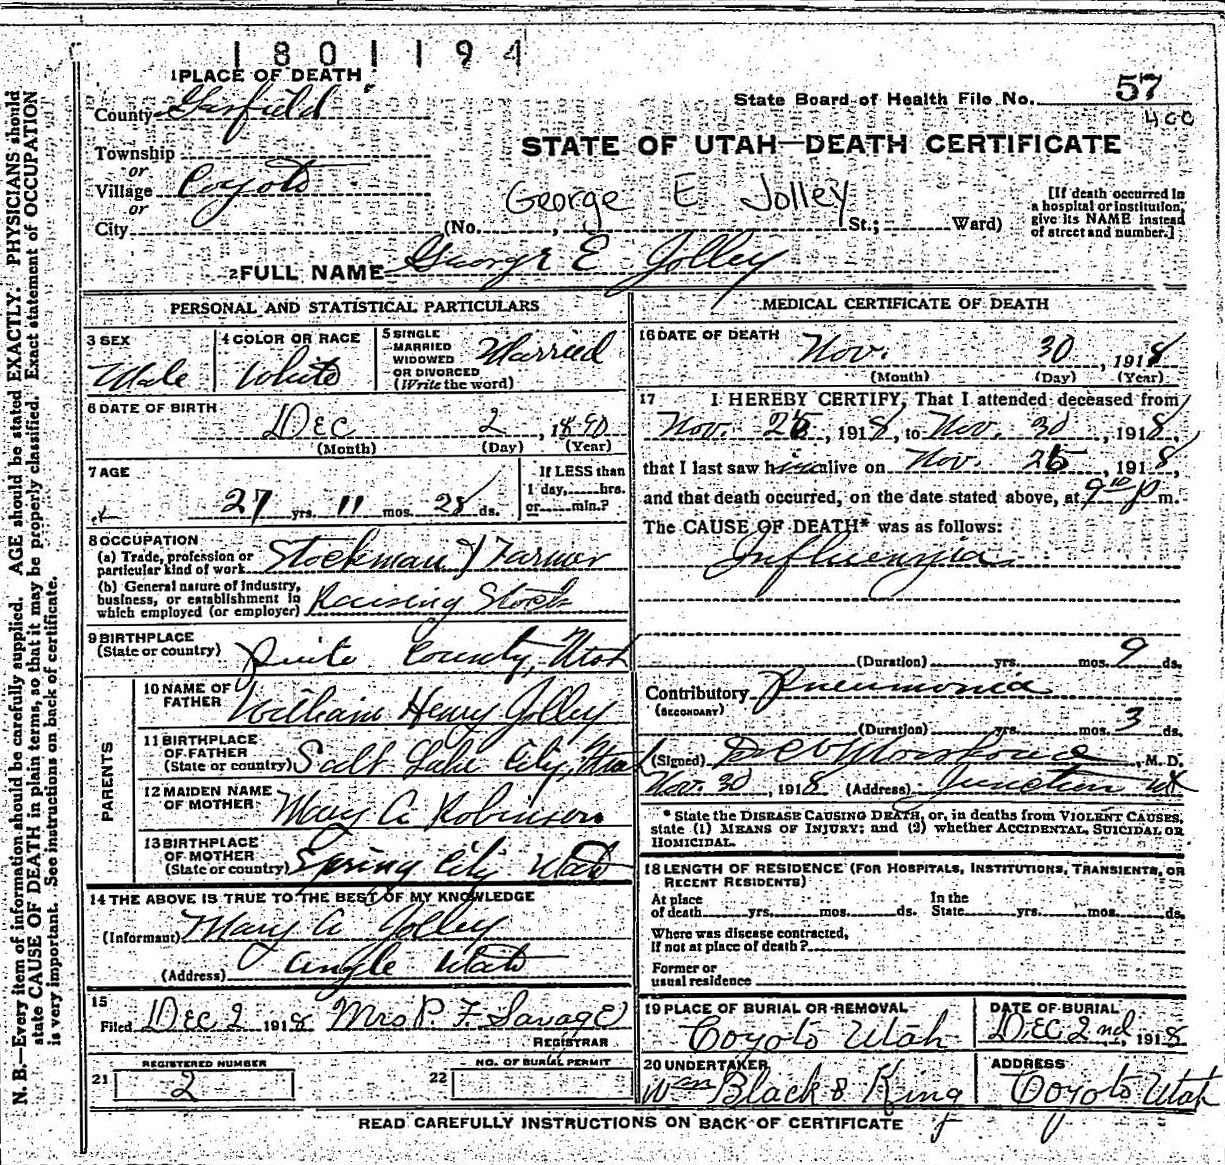 1801194
1 PLACE OF DEATH
County Garfield
State Board of Health File No. 57
400
STATE OF UTAH—DEATH CERTIFICATE
Township
or
Village Coyoto
or
City
George E Jolley
(No. , St.; Ward)
[If death occurred in
a hospital or institution,
give its NAME instead
of street and number.]
2 FULL NAME George E Jolley
PERSONAL AND STATISTICAL PARTICULARS
3 SEX
Male
4 COLOR OR RACE
White
5 SINGLE
MARRIED
WIDOWED
OR DIVORCED
(Write the word)
Married
6 DATE OF BIRTH
Dec 2, 1890
(Month) (Day) (Year)
7 AGE
27 yrs. 11 mos. 28 ds.
If LESS than
1 day, hrs.
or min.?
8 OCCUPATION
(a) Trade, profession or
particular kind of work Stockman & Farmer
(b) General nature of industry,
business, or establishment in
which employed (or employer) Raising Stock
9 BIRTHPLACE
(State or country) Puite County, Utah
PARENTS
10 NAME OF
FATHER William Henry Jolley
11 BIRTHPLACE
OF FATHER
(State or country) Salt Lake City, Utah
12 MAIDEN NAME
OF MOTHER Mary A Robinson
13 BIRTHPLACE
OF MOTHER
(State or country) Spring City Utah
14 THE ABOVE IS TRUE TO THE BEST OF MY KNOWLEDGE
(Informant) Mary A Jolley
(Address) Angle Utah
15
Filed Dec 2 1918 Mrs P. F. Savage
REGISTRAR
21 REGISTERED NUMBER
2
22 NO. OF BURIAL PERMIT
MEDICAL CERTIFICATE OF DEATH
16 DATE OF DEATH
Nov. 30, 1918
(Month) (Day) (Year)
17 I HEREBY CERTIFY, That I attended deceased from
Nov. 26, 1918, to Nov. 30, 1918,
that I last saw him alive on Nov. 26, 1918,
and that death occurred, on the date stated above, at 9 10 p m.
The CAUSE OF DEATH* was as follows:
Influenzia
(Duration) yrs. mos. 9 ds.
Contributory Pneumonia
(SECONDARY)
(Duration) yrs. mos. 3 ds.
(Signed) , M. D.
Nov. 30, 1918 (Address) Junction ut
* State the DISEASE CAUSING DEATH, or, in deaths from VIOLENT CAUSES,
state (1) MEANS OF INJURY; and (2) whether ACCIDENTAL, SUICIDAL OR
HOMICIDAL.
18 LENGTH OF RESIDENCE (FOR HOSPITALS, INSTITUTIONS, TRANSIENTS, OR
RECENT RESIDENTS)
At place
of death yrs. mos. ds.
In the
State yrs. mos. ds.
Where was disease contracted,
If not at place of death?
Former or
usual residence
19 PLACE OF BURIAL OR REMOVAL
Coyoto Utah
DATE OF BURIAL
Dec 2nd, 1918
20 UNDERTAKER
Wm Black & King
ADDRESS
Coyoto Utah
READ CAREFULLY INSTRUCTIONS ON BACK OF CERTIFICATE
N. B.—Every item of information should be carefully supplied. AGE should be stated EXACTLY. PHYSICIANS should
state CAUSE OF DEATH in plain terms, so that it may be properly classified. Exact statement of OCCUPATION
is very important. See instructions on back of certificate.